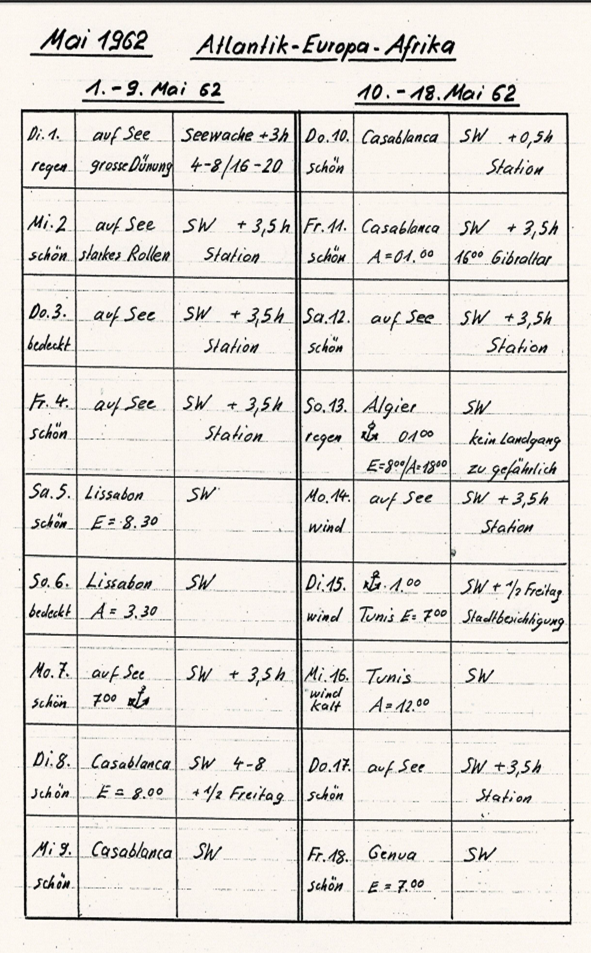 Mai 1962 Atlantik-Europa-Afrika
1.-9. Mai 62
Di.1. auf See Seewache +3h
regen grosse Dünung 4-8/16-20
Mi.2 auf See SW + 3,5h
schön starkes Rollen Station
Do.3. auf See SW + 3,5h
bedeckt Station
Fr.4. auf See SW + 3,5h
schön Station
Sa.5. Lissabon SW
schön E = 8.30
So.6. Lissabon SW
bedeckt A = 3.30
Mo.7. auf See SW + 3,5h
schön 700 ⚓
Di.8. Casablanca SW 4-8
schön E = 8.00 + 1/2 Freitag
Mi 9. Casablanca SW
schön
10.-18. Mai 62
Do.10. Casablanca SW +0,5h
schön Station
Fr.11. Casablanca SW + 3,5h
schön A = 01.00 16⁰⁰ Gibraltar
Sa.12. auf See SW + 3,5h
schön Station
So.13. Algier SW
regen ⚓ 0100 kein Landgang
E=8⁰⁰/A=18⁰⁰ zu gefährlich
Mo.14. auf See SW + 3,5h
wind Station
Di.15. ⚓. 1.00 SW + 1/2 Freitag
wind Tunis E= 7⁰⁰ Stadtbesichtigung
Mi.16. Tunis SW
wind
kalt A=12.00
Do.17. auf See SW +3,5h
schön Station
Fr.18. Genua SW
schön E = 7.00